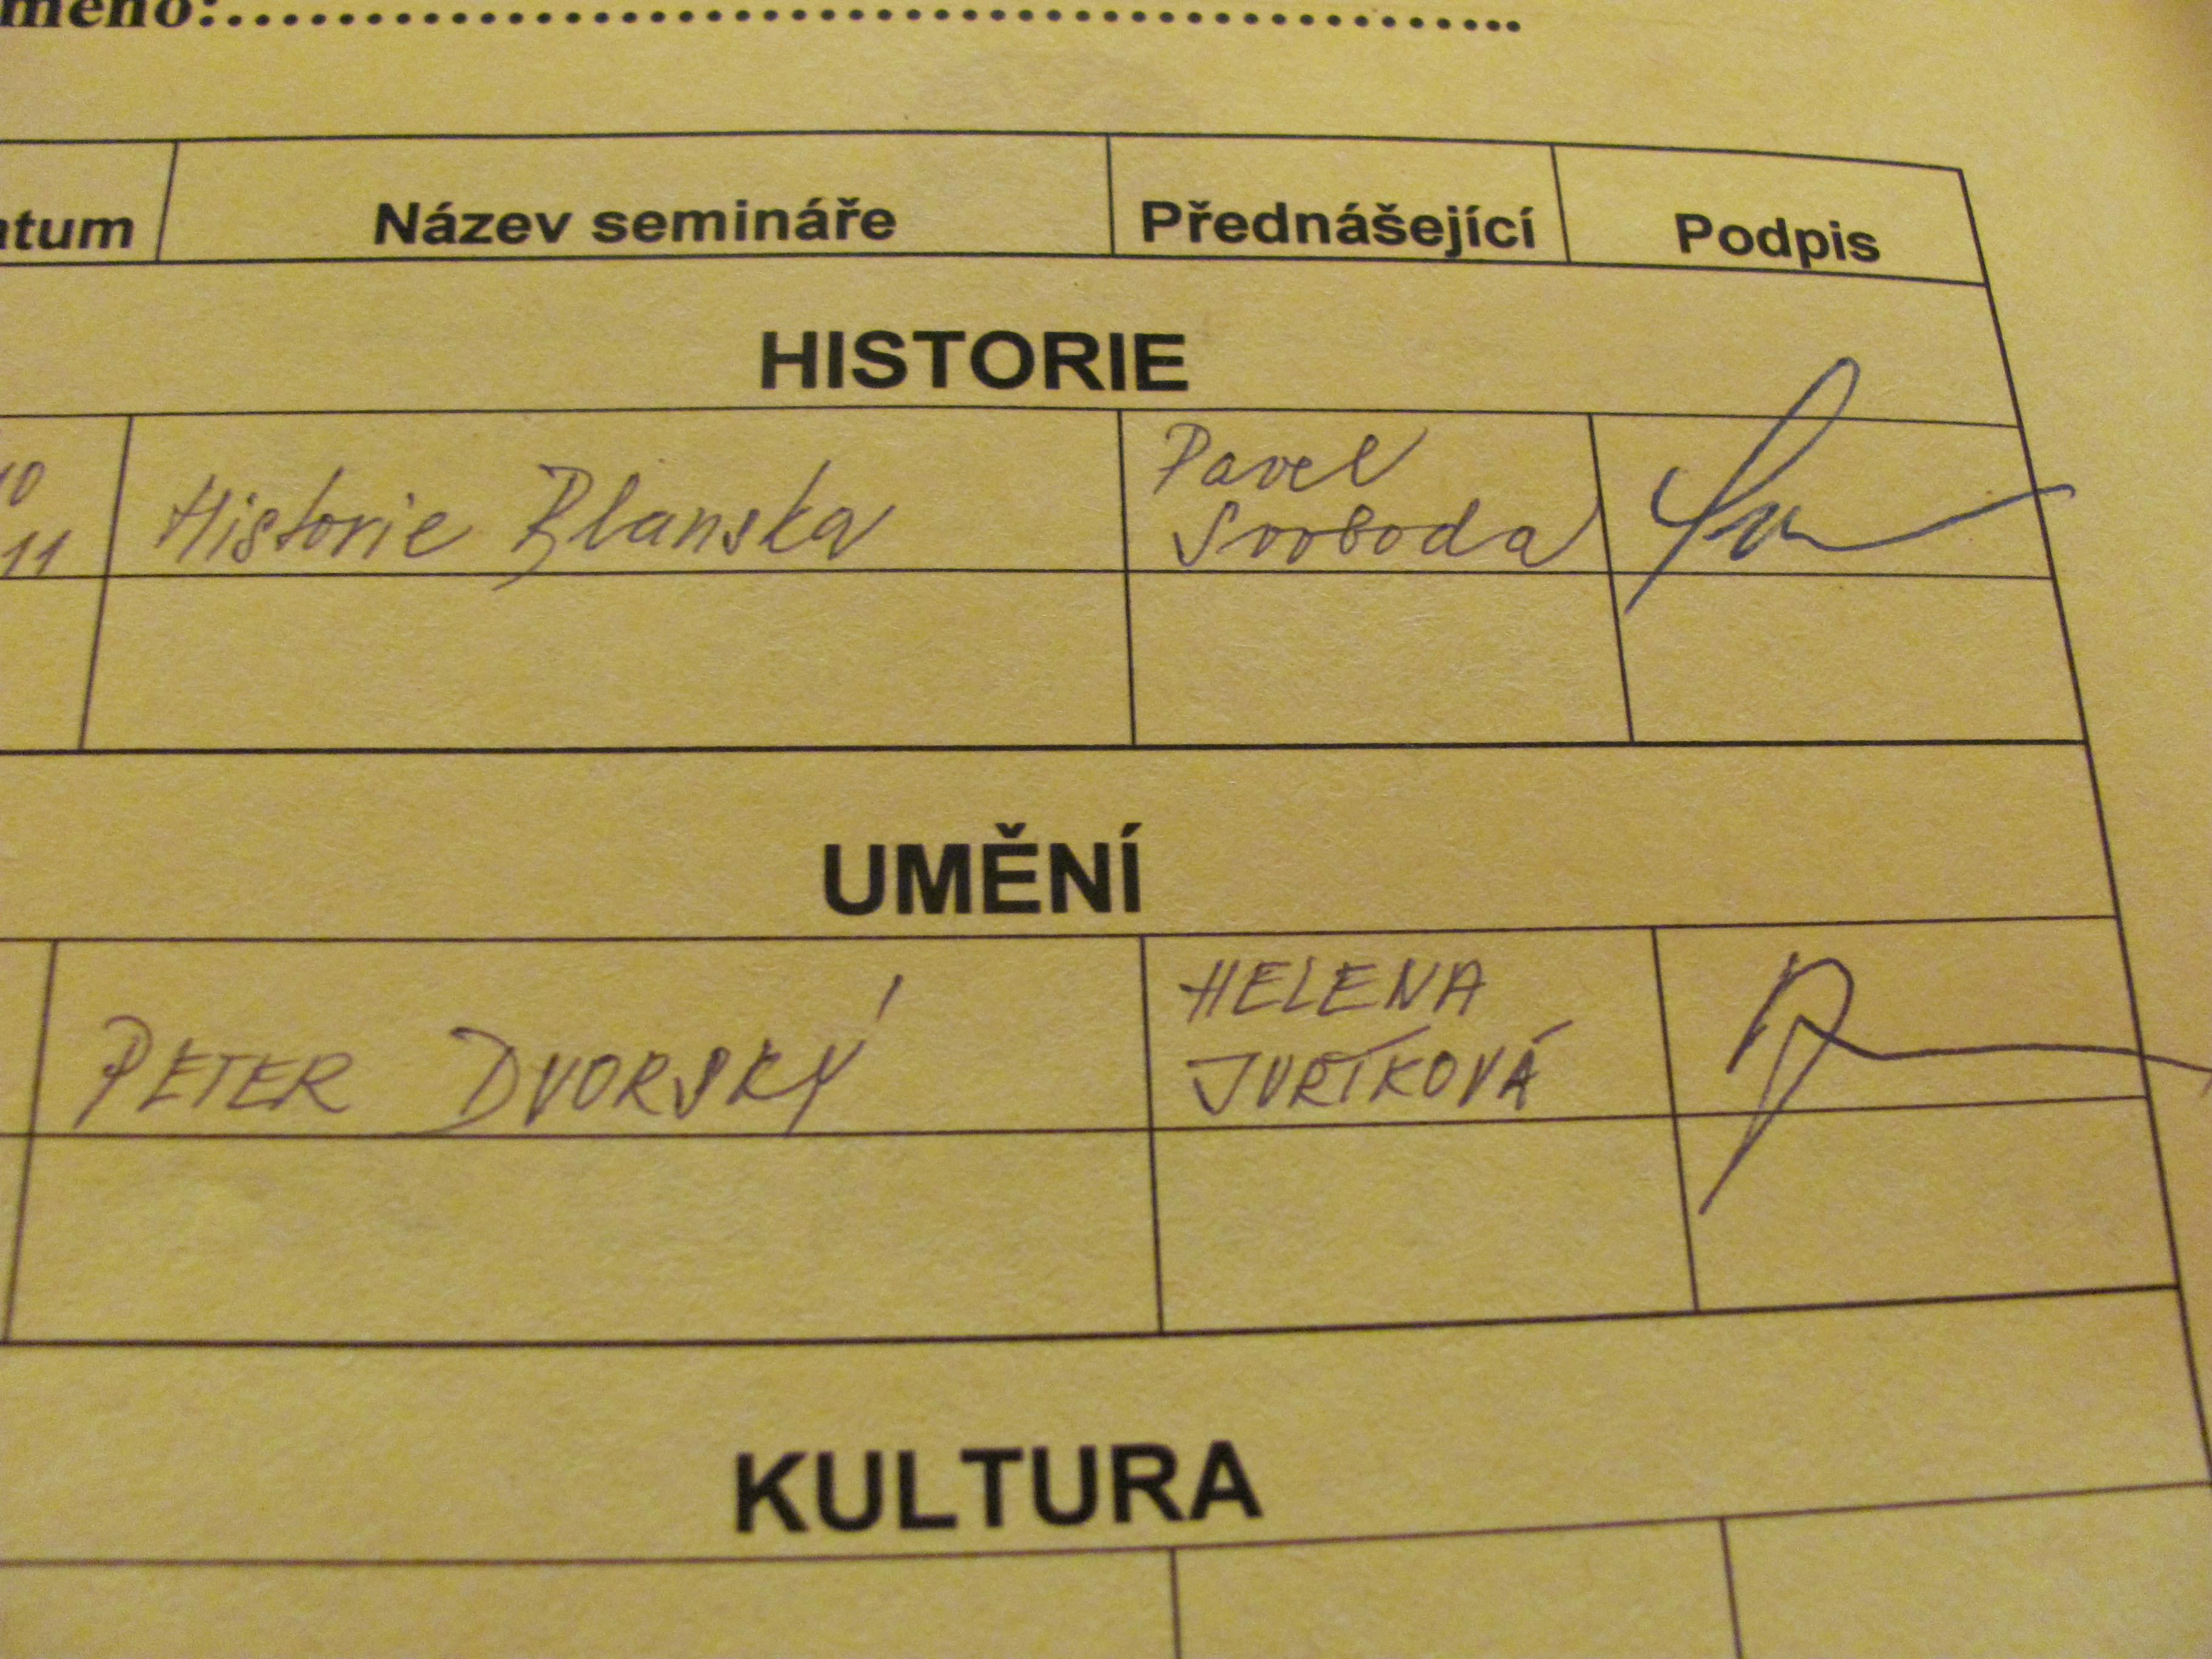 méno:..........................................................
atum Název semináře Přednášející Podpis
HISTORIE
10 Pavel
11 Historie Blanska Svoboda
UMĚNÍ
HELENA
PETER DVORSKÝ JUŘÍKOVÁ
KULTURA